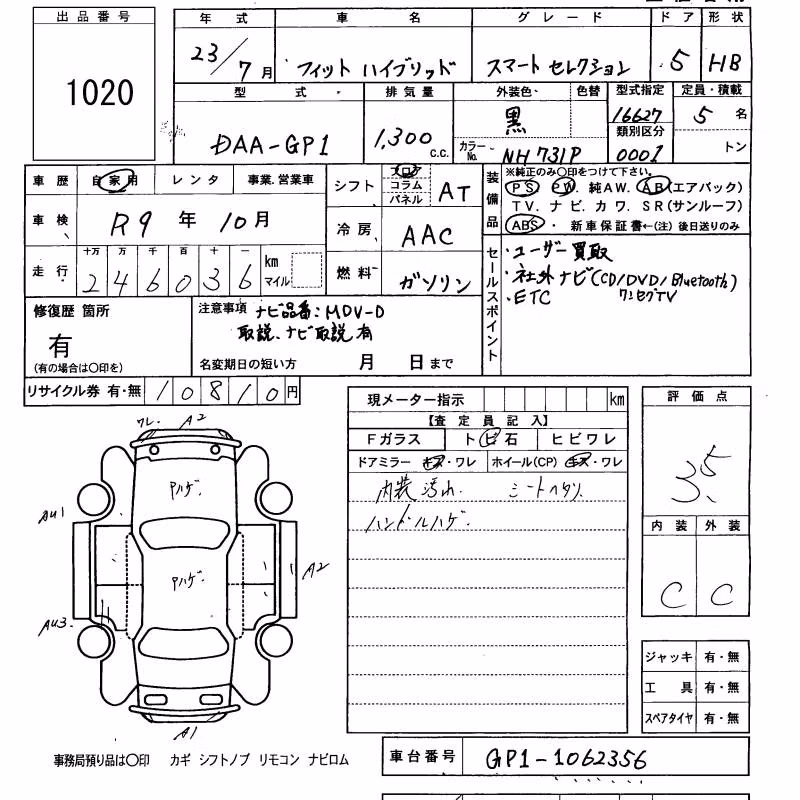 出品番号
1020
年式 車名 グレード ドア 形状
23/7月 フィット ハイブリッド スマート セレクション 5 HB
型式 排気量 外装色 色替 型式指定 定員・積載
DAA-GP1 1,300 c.c. 黒 16627 5 名
カラーNo. NH731P 類別区分 0001 トン
車歴 自家用 レンタ 事業.営業車
車検 R9年10月
走行 十万 万 千 百 十 一 km マイル
246036
シフト フロア コラム パネル AT
冷房 AAC
燃料 ガソリン
装備品
※純正のみ○印をつけて下さい。
PS. PW. 純AW. AB(エアバック)
TV. ナビ. カワ. SR(サンルーフ)
ABS・ 新車保証書←(注)後日送りのみ
セールスポイント
・ユーザー買取
・社外ナビ(CD/DVD/Bluetooth)
・ETC ワンセグTV
修復歴 箇所
有
(有の場合は○印を)
注意事項 ナビ品番:MDV-D
取説、ナビ取説有
名変期日の短い方 月 日まで
リサイクル券 有・無 10810円
現メーター指示 km
【査定員記入】
Fガラス トビ石 ヒビワレ
ドアミラー キズ・ワレ ホイール(CP) キズ・ワレ
内装汚れ. シートヘタリ.
ハンドルハゲ.
評価点
3.5
内装 外装
C C
ワレ. A2
Pハゲ.
AU1
Pハゲ.
A2
AU3.
A1
ジャッキ 有・無
工具 有・無
スペアタイヤ 有・無
事務局預り品は○印 カギ シフトノブ リモコン ナビロム
車台番号 GP1-1062356